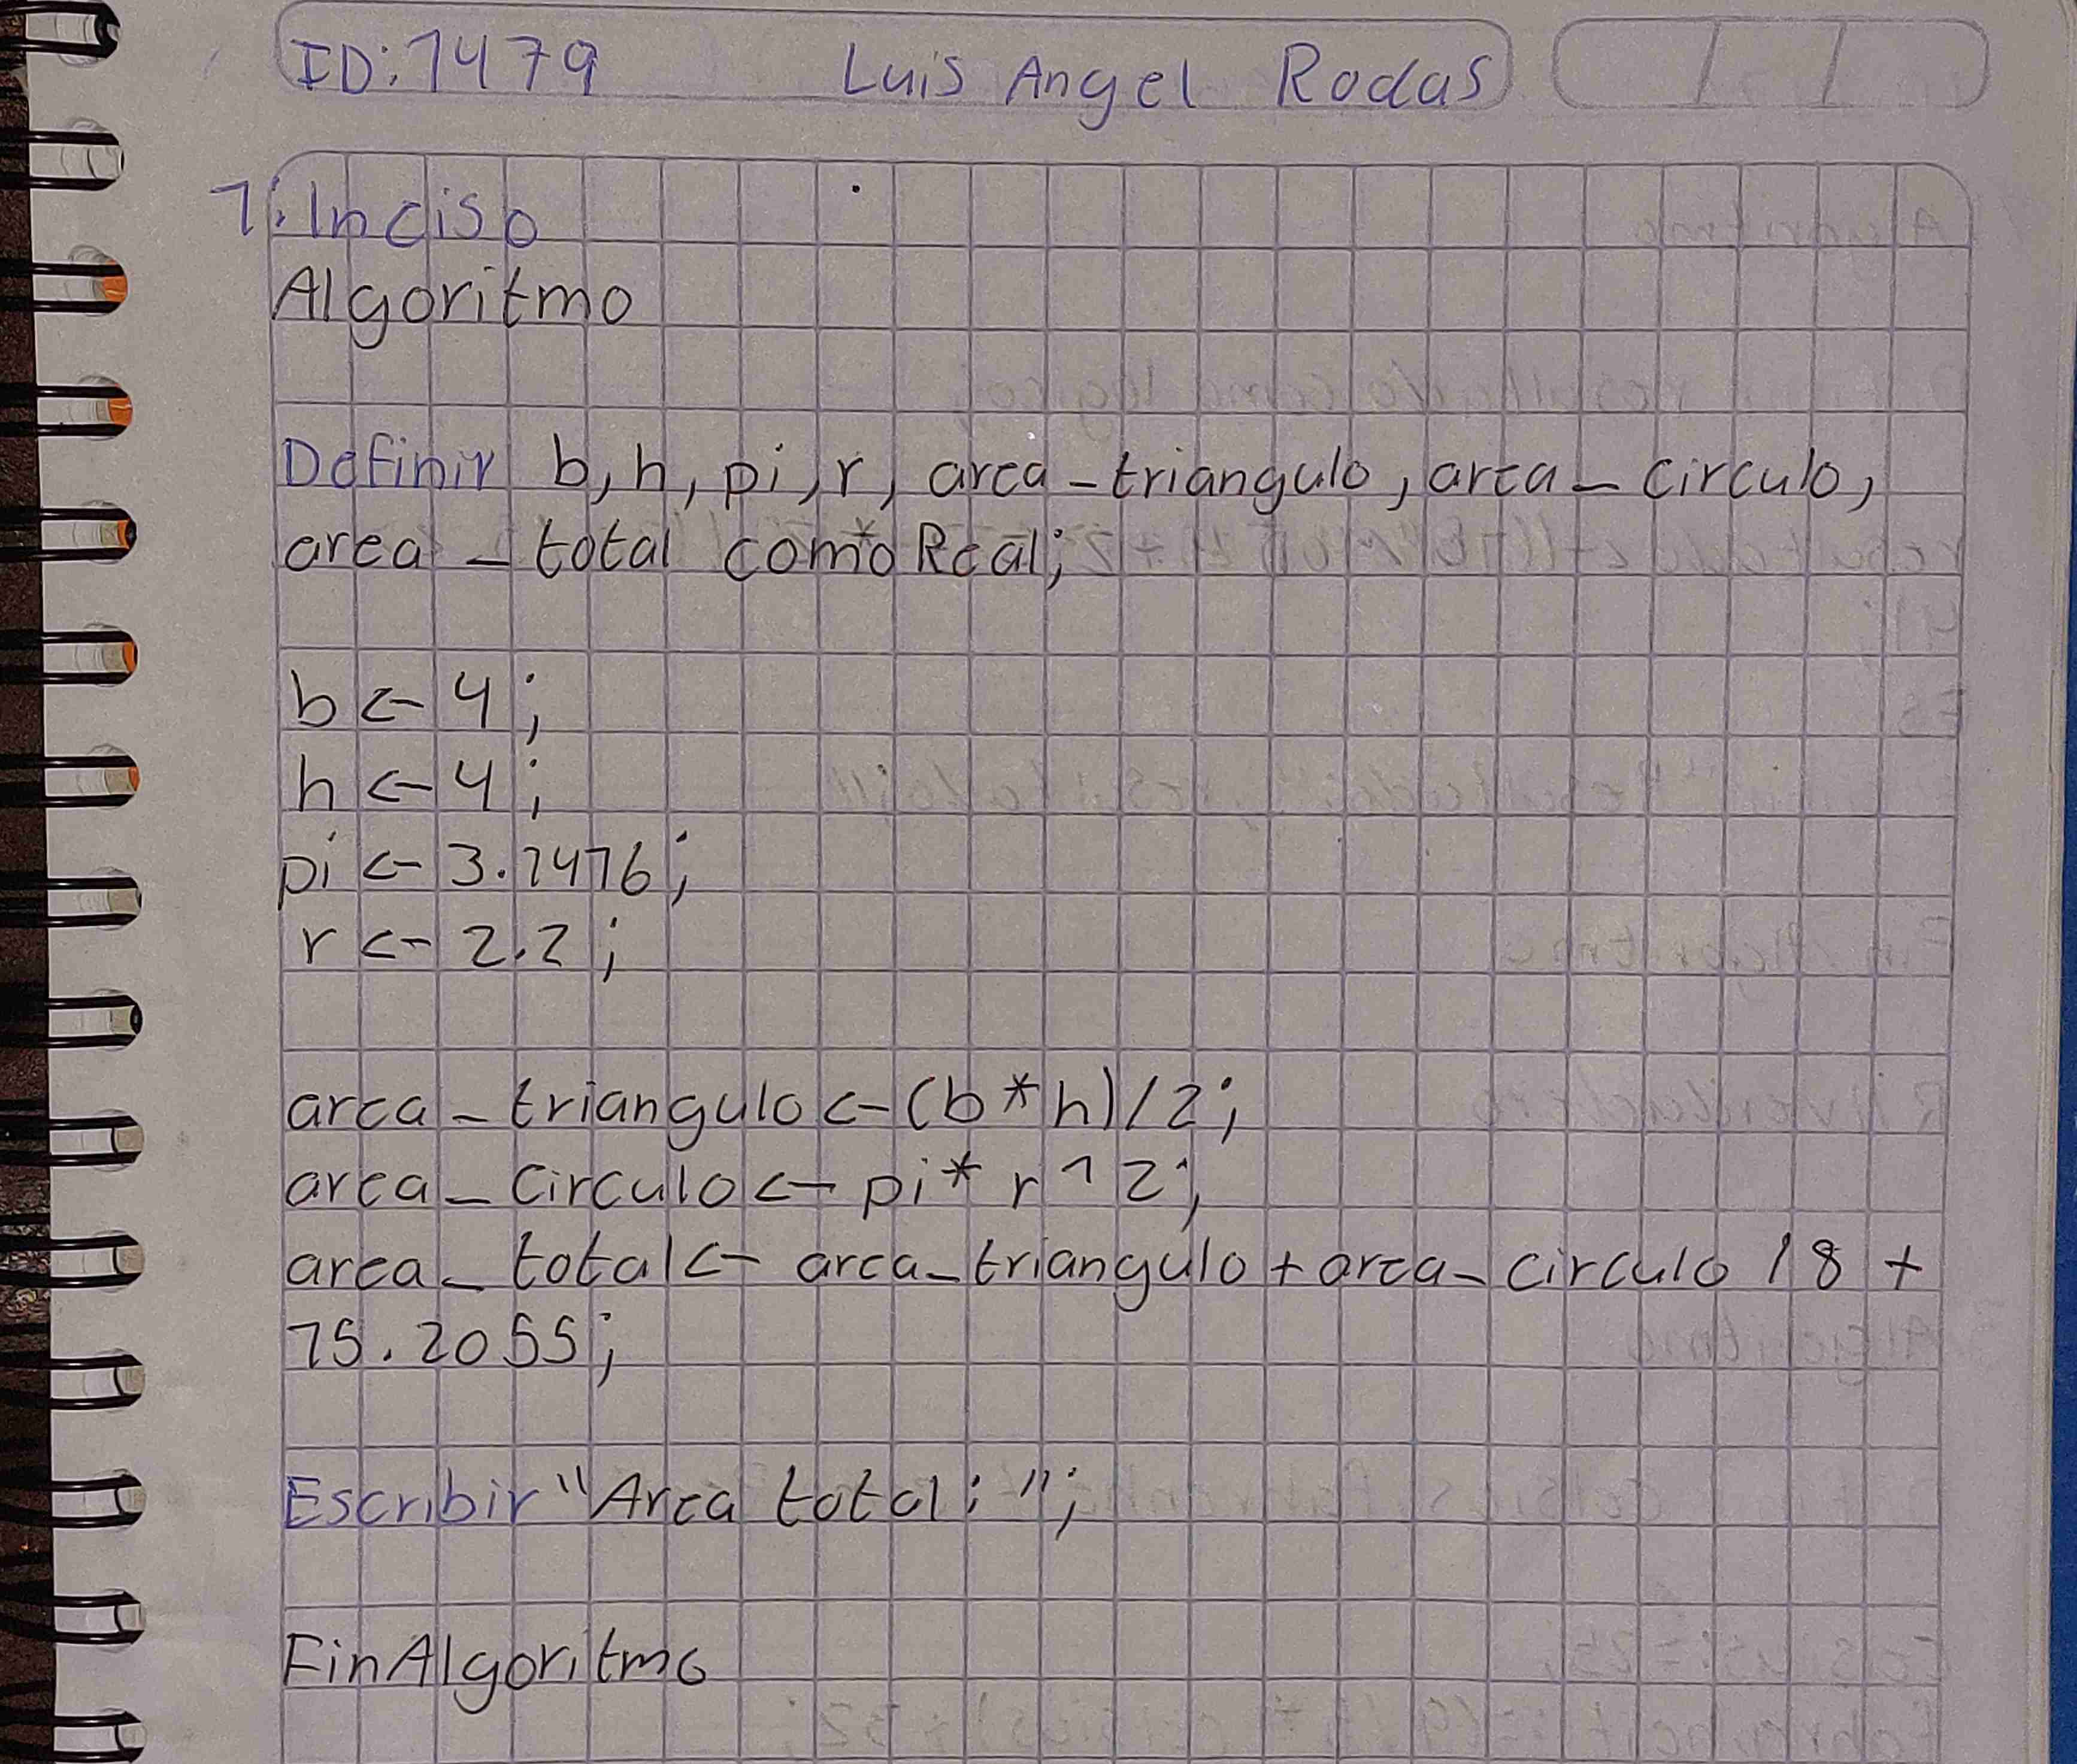 ID: 1479 Luis Angel Rodas
1. Inciso
Algoritmo
Definir b, h, pi, r, area_triangulo, area_circulo,
area_total como Real;
b <- 4;
h <- 4;
pi <- 3.1416;
r <- 2.2;
area_triangulo <- (b * h) / 2;
area_circulo <- pi * r ^ 2;
area_total <- area_triangulo + area_circulo / 8 +
15.2055;
Escribir "Area total: ";
FinAlgoritmo